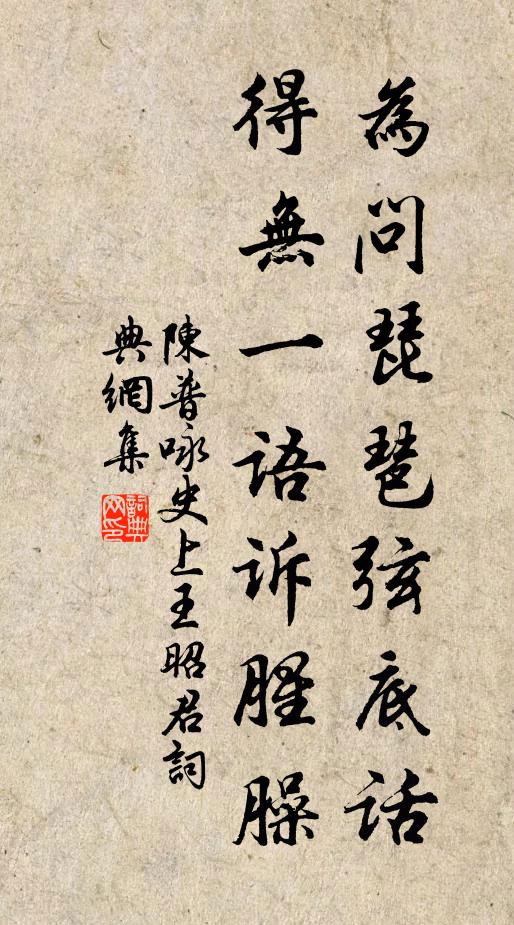 為問琵琶弦底話
得無一語訴腥臊
陳普咏史上王昭君詞
典網集
詞典网印